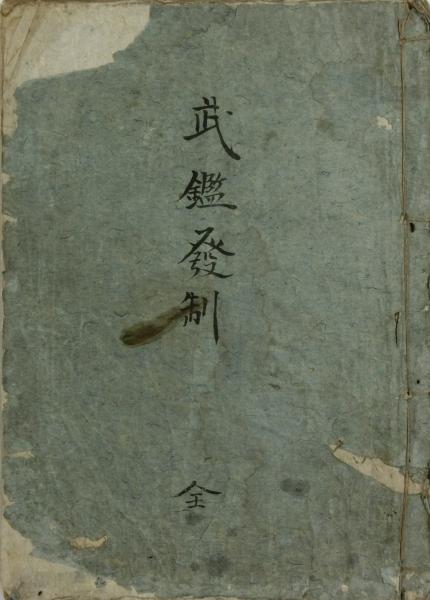 武鑑發制
全